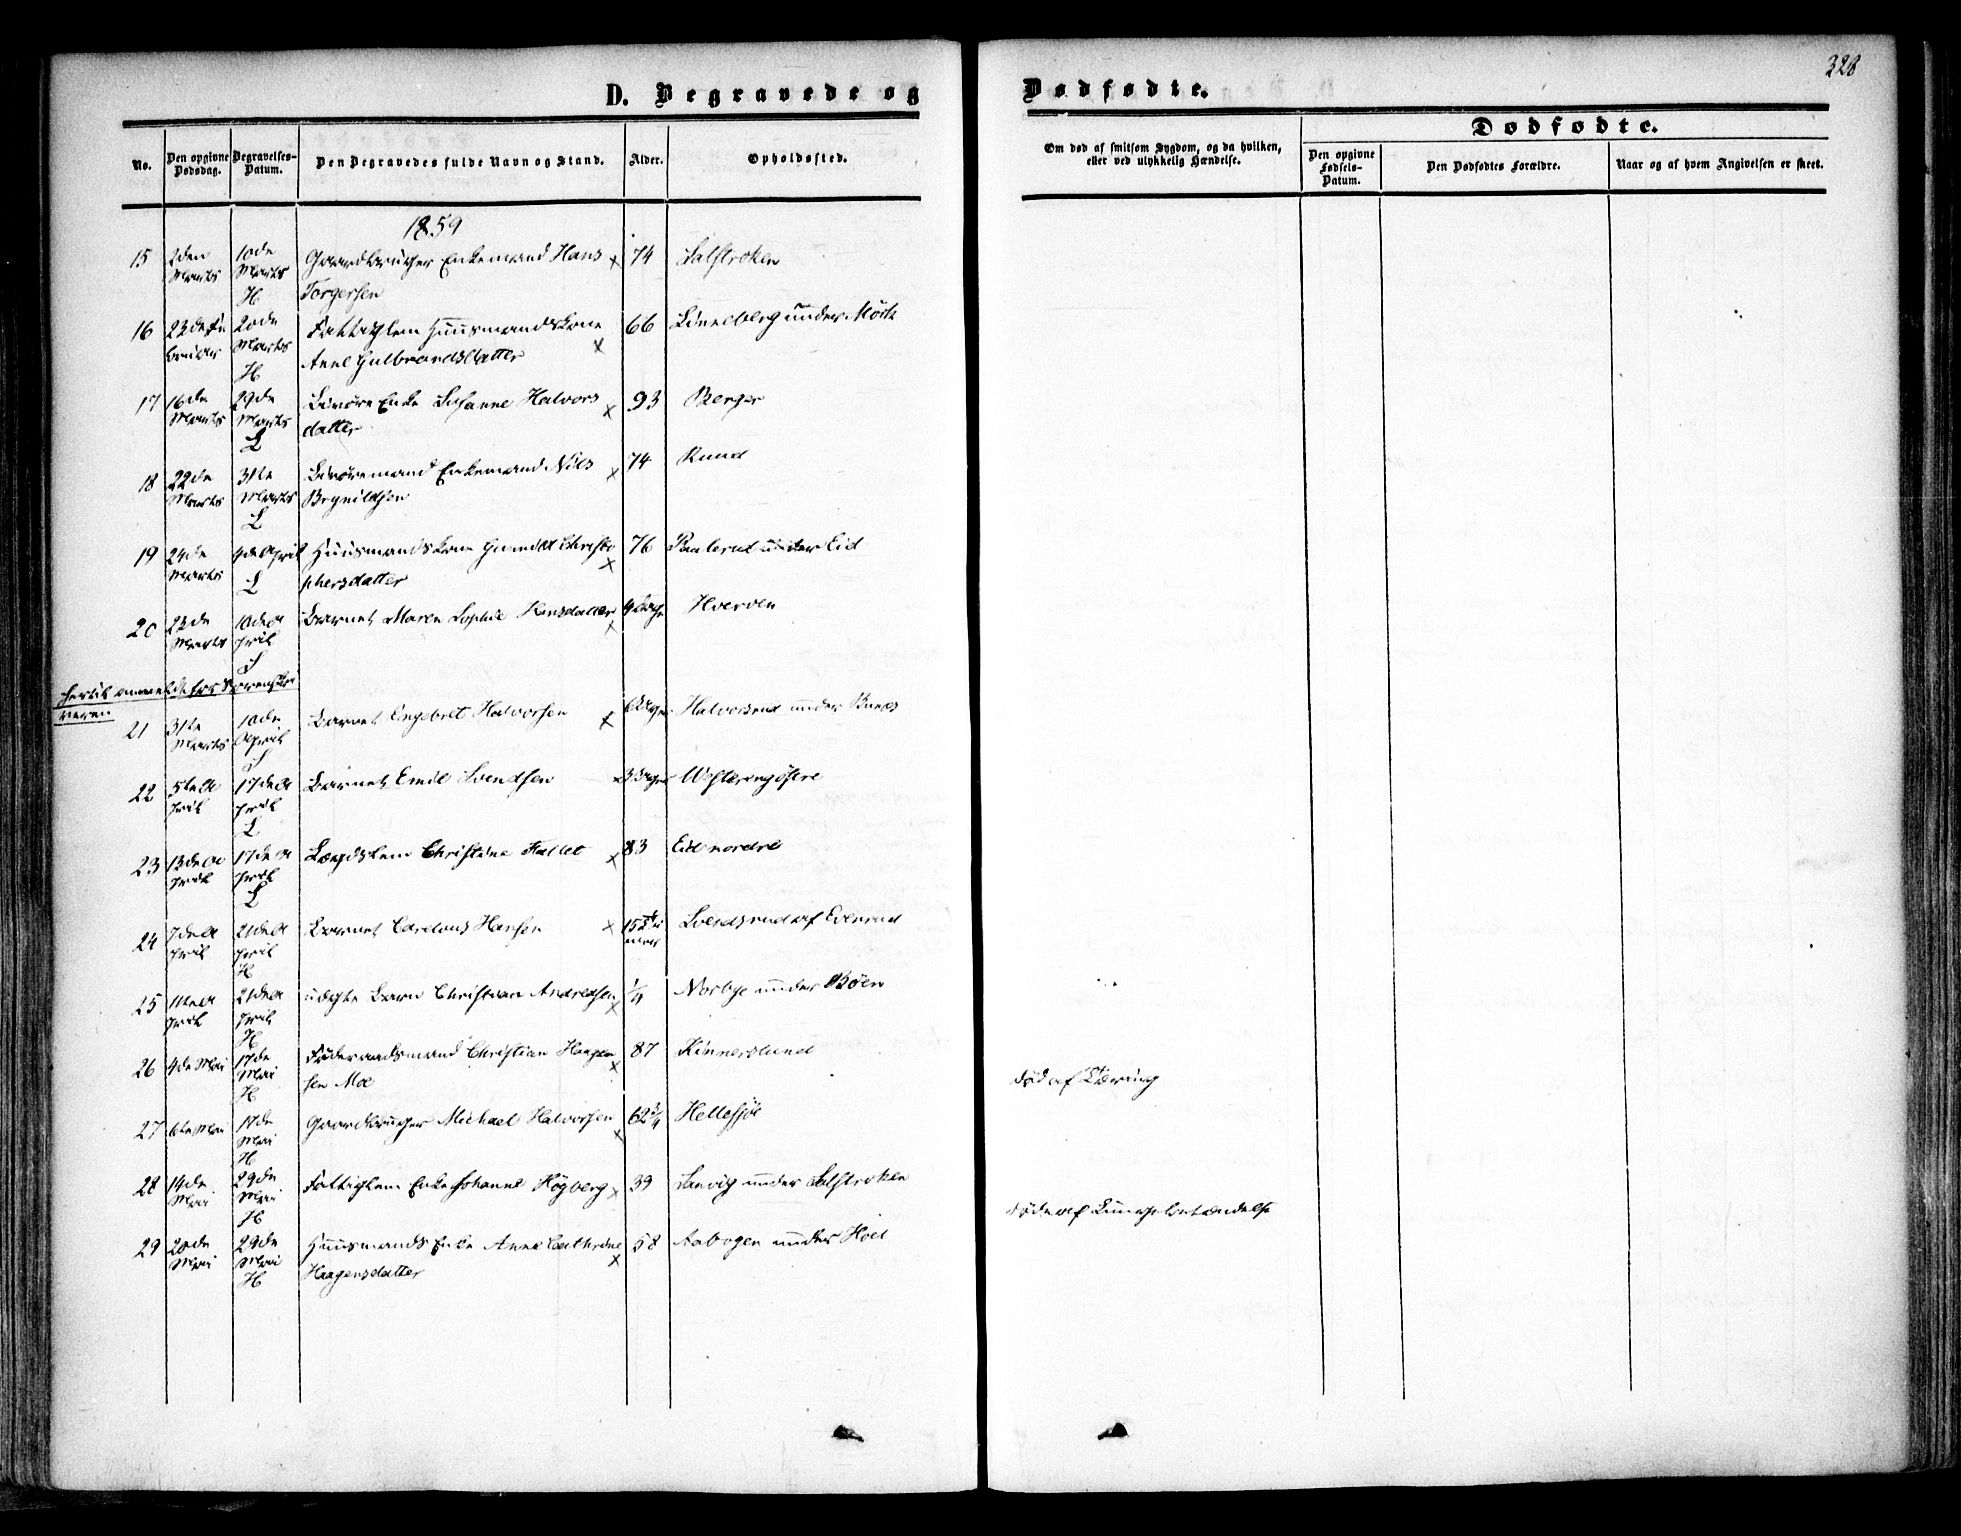 328
D. Begravede og
Dødfødte.
No.
Den opgivne Dødsdag.
Begravelses-Datum.
Den Begravedes fulde Navn og Stand.
Alder.
Opholdssted.
Om død af smitsom Sygdom, og da hvilken,
eller ved ulykkelig Hændelse.
Dødfødte.
Den opgivne Fødsels-Datum.
Den Dødfødtes Forældre.
Naar og af hvem Angivelsen er skeet.
1859
15 2den Marts 10de Marts H Gaardbruger Enkemand Hans Torgersen x 74
16 20de Marts H Fattiglem Huusmandskone Anne Gulbrandsdatter x 66
17 16de Marts 29de Marts L Enke Susanne Halvorsdatter x 93 Berger
18 22de Marts 31te Marts L Enkemand Nils Brynildsen x 74 Ruud
19 24de Marts 4de April L Huusmandskone Christophersdatter x 76 under Eid
20 23de Marts 10de April Barnet Maren Sophie Hansdatter x Hverven
anmeldt
21 31te Marts 10de April Barnet Engebret Halvorsen x Halvorsrud under
22 5te April 17de April L Barnet Emil Svendsen x 3 Dage
23 13de April 17de April L Lægdslem Christine Fallet x 83 Eid nordre
24 7de April 21de April H Barnet Hansen x
25 11te April 21de April H uægte Barn Christian Andreasen x 1/4 Norbye under Bøen
26 4de Mai 17de Mai H Føderaadsmand Christian Haagensen Moe x 87 Kinnerslund
død af Tæring
27 6te Mai 17de Mai H Gaardbruger Michael Halvorsen x 62 3/4 Hellesjøe
28 19de Mai 29de Mai H Fattiglem Enke Johanne Høgberg x 39 Sanvig under
døde af Lungebetændelse
29 20de Mai 29de Mai H Huusmands Enke Anne Cathrine Haagensdatter x 58 Aabogen under Hoel